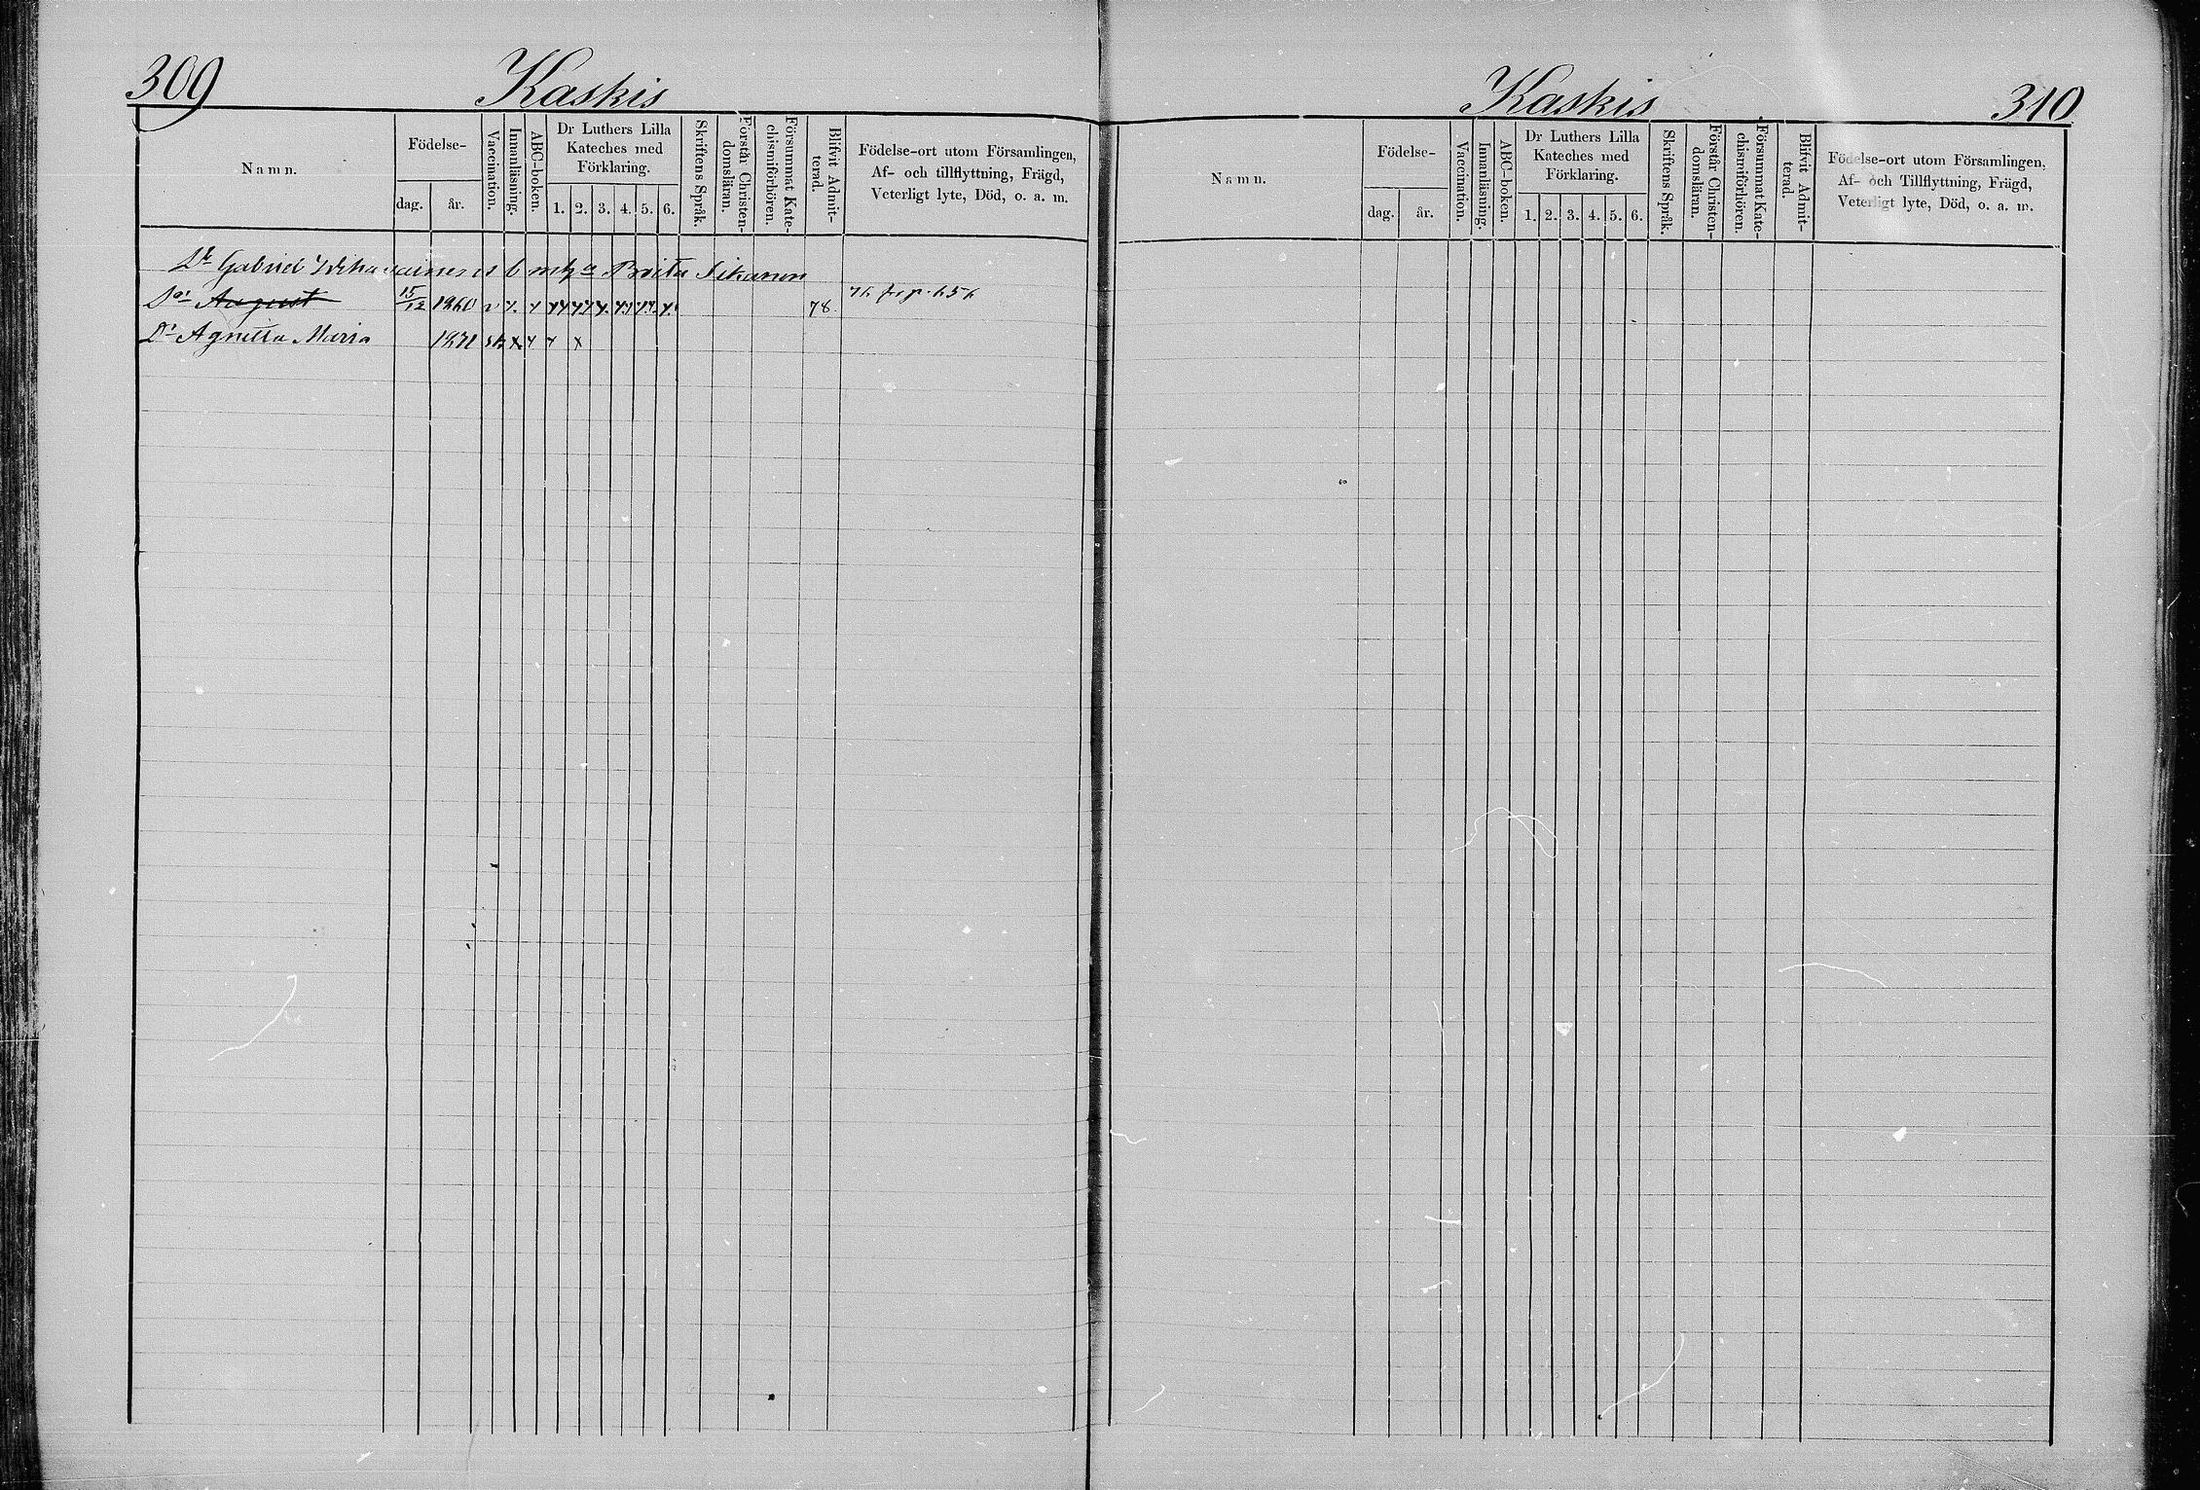 309
Kaskis
Namn.
Födelse-
dag.
år.
Vaccination.
Innanläsning.
ABC-boken.
Dr Luthers Lilla
Kateches med
Förklaring.
1. 2. 3. 4. 5. 6.
Skriftens Språk.
Förstår Christen-
domsläran.
Försummat Kate-
chismiförhören.
Blifvit Admit-
terad.
Födelse-ort utom Församlingen,
Af- och tillflyttning, Frägd,
Veterligt lyte, Död, o. a. m.
Gabriel Brita
August 15/12 1860 v 78.
Dr Agnetta Maria 1871
Kaskis
310
Namn.
Födelse-
dag.
år.
Vaccination.
Innanläsning.
ABC-boken.
Dr Luthers Lilla
Kateches med
Förklaring.
1. 2. 3. 4. 5. 6.
Skriftens Språk.
Förstår Christen-
domsläran.
Försummat Kate-
chismiförhören.
Blifvit Admit-
terad.
Födelse-ort utom Församlingen,
Af- och Tillflyttning, Frägd,
Veterligt lyte, Död, o. a. m.